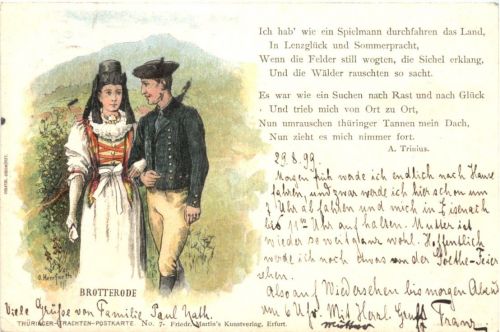 Ich hab' wie ein Spielmann durchfahren das Land,
In Lenzglück und Sommerpracht,
Wenn die Felder still wogten, die Sichel erklang,
Und die Wälder rauschten so sacht.
Es war wie ein Suchen nach Rast und nach Glück
Und trieb mich von Ort zu Ort,
Nun umrauschen thüringer Tannen mein Dach,
Nun zieht es mich nimmer fort.
A. Trinius.
29.8.99.
Morgen früh werde ich endlich nach Hause
fahren, und zwar werde ich hier schon um
7 Uhr abfahren und mich in Eisenach
bis 11 Uhr auf halten. Mutter ist
wieder so weit ganz wohl. Hoffentlich
werde ich noch etwas von der Goethe-Feier
sehen.
Also auf Wiedersehen bis morgen Abend
um 6 Uhr. Mit Herzl. Gruß Franz.
BROTTERODE
Viele Grüße von Familie Paul
THÜRINGER-TRACHTEN-POSTKARTE No. 7. Friedr. Martin's Kunstverlag, Erfurt.